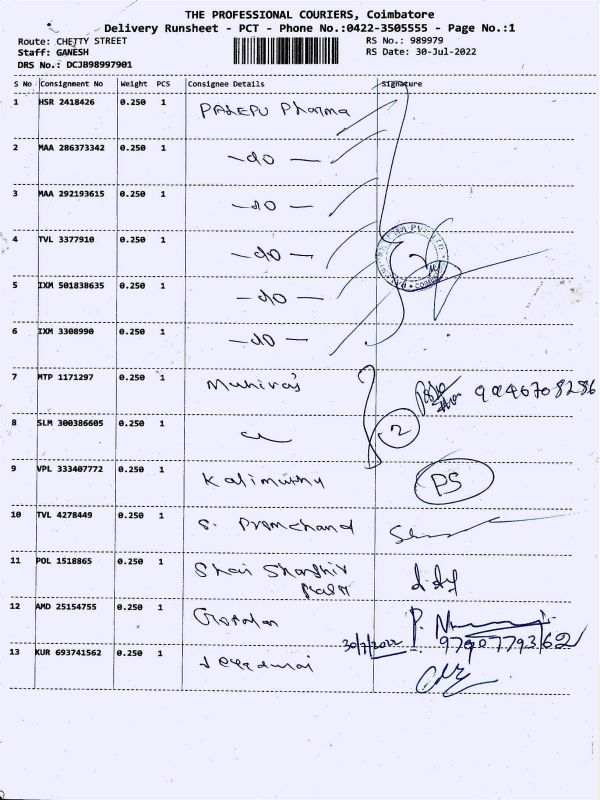 THE PROFESSIONAL COURIERS, Coimbatore
Delivery Runsheet - PCT - Phone No.:0422-3505555 - Page No.:1
Route: CHETTY STREET RS No.: 989979
Staff: GANESH RS Date: 30-Jul-2022
DRS No.: DCJB98997901
S No Consignment No Weight PCS Consignee Details Signature
1 HSR 2418426 0.250 1 PALEPU Pharma
2 MAA 286373342 0.250 1 —do—
3 MAA 292193615 0.250 1 —do—
4 TVL 3377910 0.250 1 —do—
5 IXM 501838635 0.250 1 —do—
6 IXM 3308990 0.250 1 —do—
7 MTP 1171297 0.250 1
8 SLM 300386605 0.250 1 2
9 VPL 333407772 0.250 1 PS
10 TVL 4278449 0.250 1 S. Premchand
11 POL 1518865 0.250 1
12 AMD 25154755 0.250 1
30/7/2022
13 KUR 693741562 0.250 1